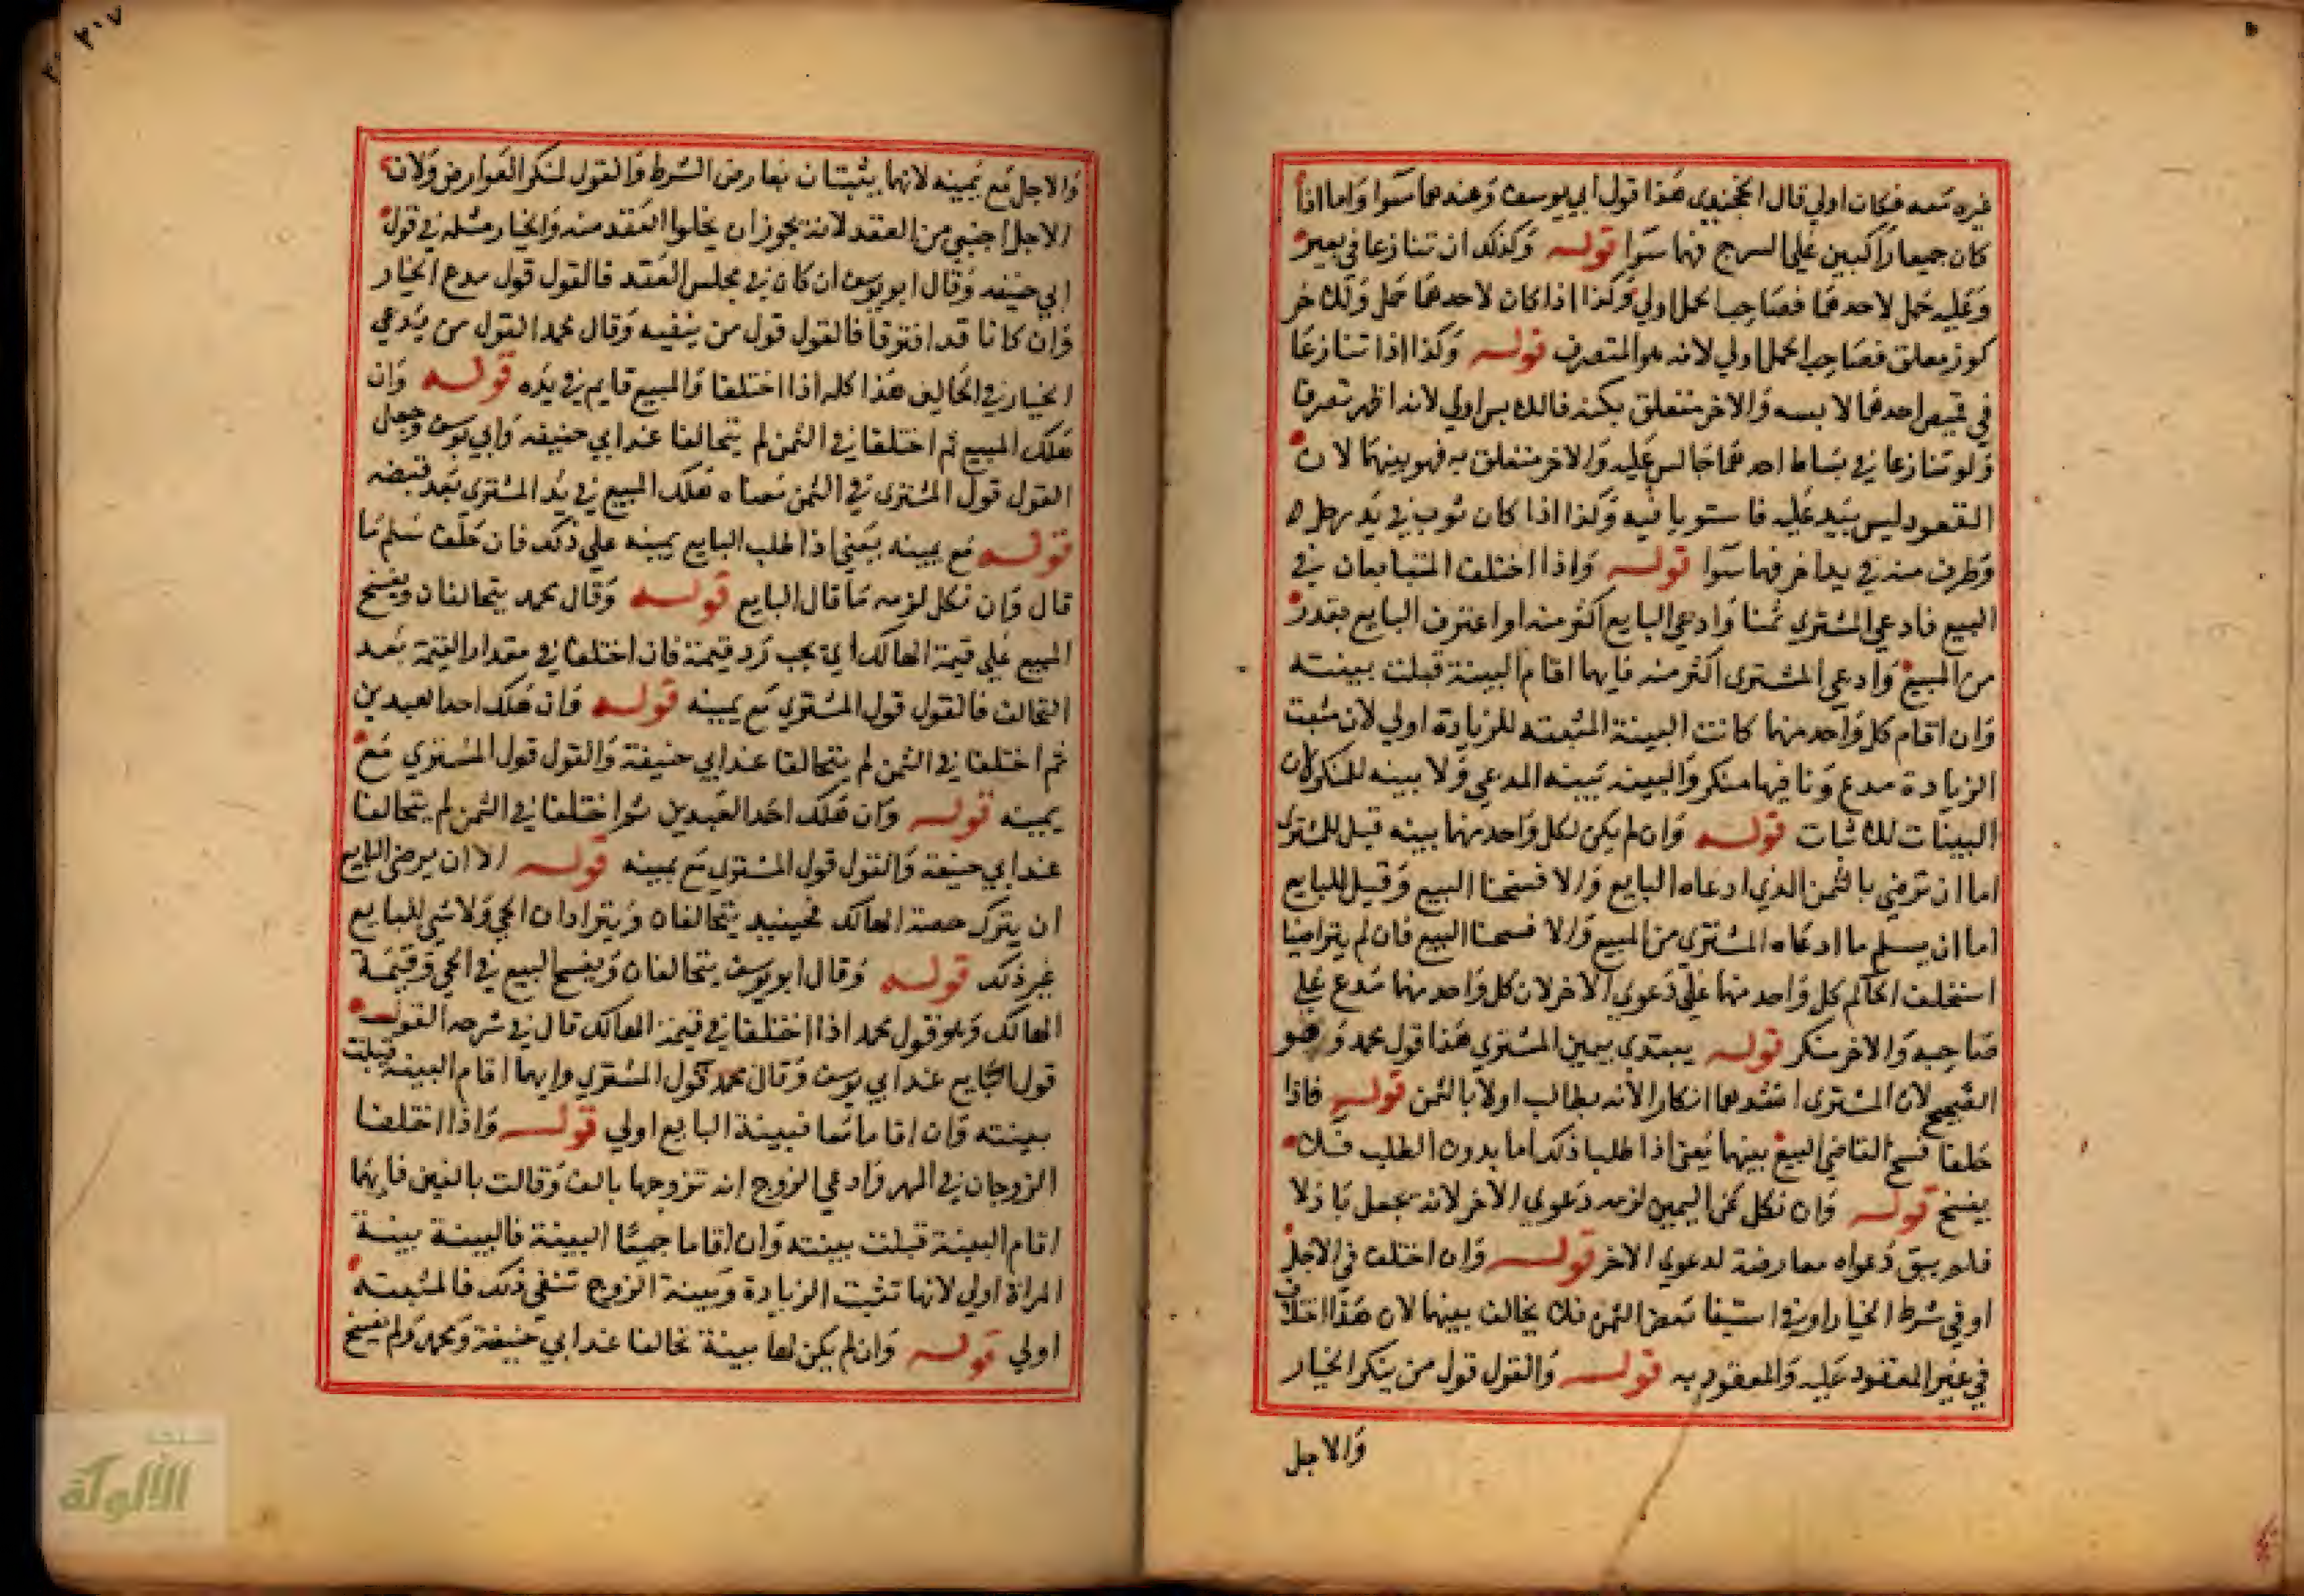 غيره معه فكان اولي قال الخجندي هذا قول ابي يوسف وعندهما سوا واما اذا
كان جميعا راكبين علي السرج فهما سوا قوله وكذلك ان تنازعا في بعير
وعليه حمل لاحدهما فصاحب الحمل اولي وكذا اذا كان لاحدهما حمل وللاخر
كوز معلق فصاحب الحمل اولي لانه هو المتصرف قوله وكذا اذا تنازعا
في قميص احدهما لابسه والاخر متعلق بكمه فاللابس اولي لانه اظهر تصرفا
ولو تنازعا في بساط احدهما جالس عليه والاخر متعلق به فهو بينهما لان
القعود ليس بيد عليه فاستويا فيه وكذا اذا كان ثوب في يد رجل
وطرف منه في يد اخر فهما سوا قوله واذا اختلف المتبايعان في
البيع فادعي المشتري ثمنا وادعي البايع اكثر منه او اعترف البايع بقدر
من المبيع وادعي المشتري اكثر منه فايهما اقام البينة قبلت بينته
وان اقام كل واحد منهما كانت البينة المثبته للزيادة اولي لان مثبت
الزيادة مدع ونافيها منكر والبينه بينه المدعي ولا بينه للمنكر ولان
البينات للاثبات قوله وان لم يكن لكل واحد منهما بينه قيل للمشتري
اما ان ترضي بالثمن الذي ادعاه البايع والا فسخنا البيع وقيل للبايع
اما ان يسلم ما ادعاه المشتري من المبيع والا فسخنا البيع فان لم يتراضيا
استحلف الحاكم كل واحد منهما علي دعوي الاخر لان كل واحد منهما مدع علي
صاحبه والاخر منكر قوله يبتدي بيمين المشتري هذا قول محمد وهو
الصحيح لان المشتري اشدهما انكارا لانه يطالب اولا بالثمن قوله فاذا
حلفا فسخ القاضي البيع بينهما يعني اذا طلبا ذلك اما بدون الطلب فلا
يفسخ قوله وان نكل عن اليمين لزمه دعوي الاخر لانه يجعل باذلا
فلم يبق دعواه معارضة لدعوي الاخر قوله وان اختلف في الاجل
او في شرط الخيار او في استيفا بعض الثمن فلا يخالف بينهما لان هذا اختلاف
في غير المعقود عليه والمعقود به قوله والقول قول من ينكر الخيار
والاجل
٣٠٧
والاجل مع يمينه لانهما يثبتان بعارض الشرط والقول لمنكر العوارض ولان
الاجل اجنبي من العقد لانه يجوز ان يخلوا العقد منه والخيار مثله في قول
ابي حنيفه وقال ابو يوسف ان كان في مجلس العقد فالقول قول مدع الخيار
وان كانا قد افترقا فالقول قول من ينفيه وقال محمد القول من يدعي
الخيار في الحالين هذا كله اذا اختلفا والمبيع قايم في يده قوله وان
هلك المبيع ثم اختلفا في الثمن لم يتحالفا عند ابي حنيفه وابي يوسف وجعل
القول قول المشتري في الثمن معناه هلك المبيع في يد المشتري بعد قبضه
قوله مع يمينه يعني اذا طلب البايع يمينه علي ذلك فان حلف سلم ما
قال وان نكل لزمه ما قال البايع قوله وقال محمد يتحالفان ويفسخ
المبيع علي قيمة الهالك اي يجب رد قيمته فان اختلفا في مقدار القيمة بعد
التحالف فالقول قول المشتري مع يمينه قوله فان هلك احد العبدين
ثم اختلفا في الثمن لم يتحالفا عند ابي حنيفة والقول قول المشتري مع
يمينه قوله وان هلك احد العبدين ثم اختلفا في الثمن لم يتحالفا
عند ابي حنيفة والقول قول المشتري مع يمينه قوله الا ان يرضي البايع
ان يترك حصة الهالك فحينيد يتحالفان ويترادان الحي ولا شي للبايع
غير ذلك قوله وقال ابو يوسف يتحالفان ويفسخ البيع في الحي وقيمة
الهالك وهو قول محمد اذا اختلفا في قيمة الهالك قال في شرحه القول
قول البايع عند ابي يوسف وقال محمد قول المشتري وايهما اقام البينه قبلت
بينته وان اقاما معا فبينة البايع اولي قوله واذا اختلفا
الزوجان في المهر وادعي الزوج انه تزوجها بالف وقالت بالفين فايهما
اقام البينة قبلت بينته وان اقاما جميعا البينة فالبينة بينة
المراة اولي لانها تثبت الزيادة وبينة الزوج تنفي ذلك فالمثبته
اولي قوله وان لم يكن لهما بينة تحالفا عند ابي حنيفة ومحمد ولم يفسخ
الألوكة